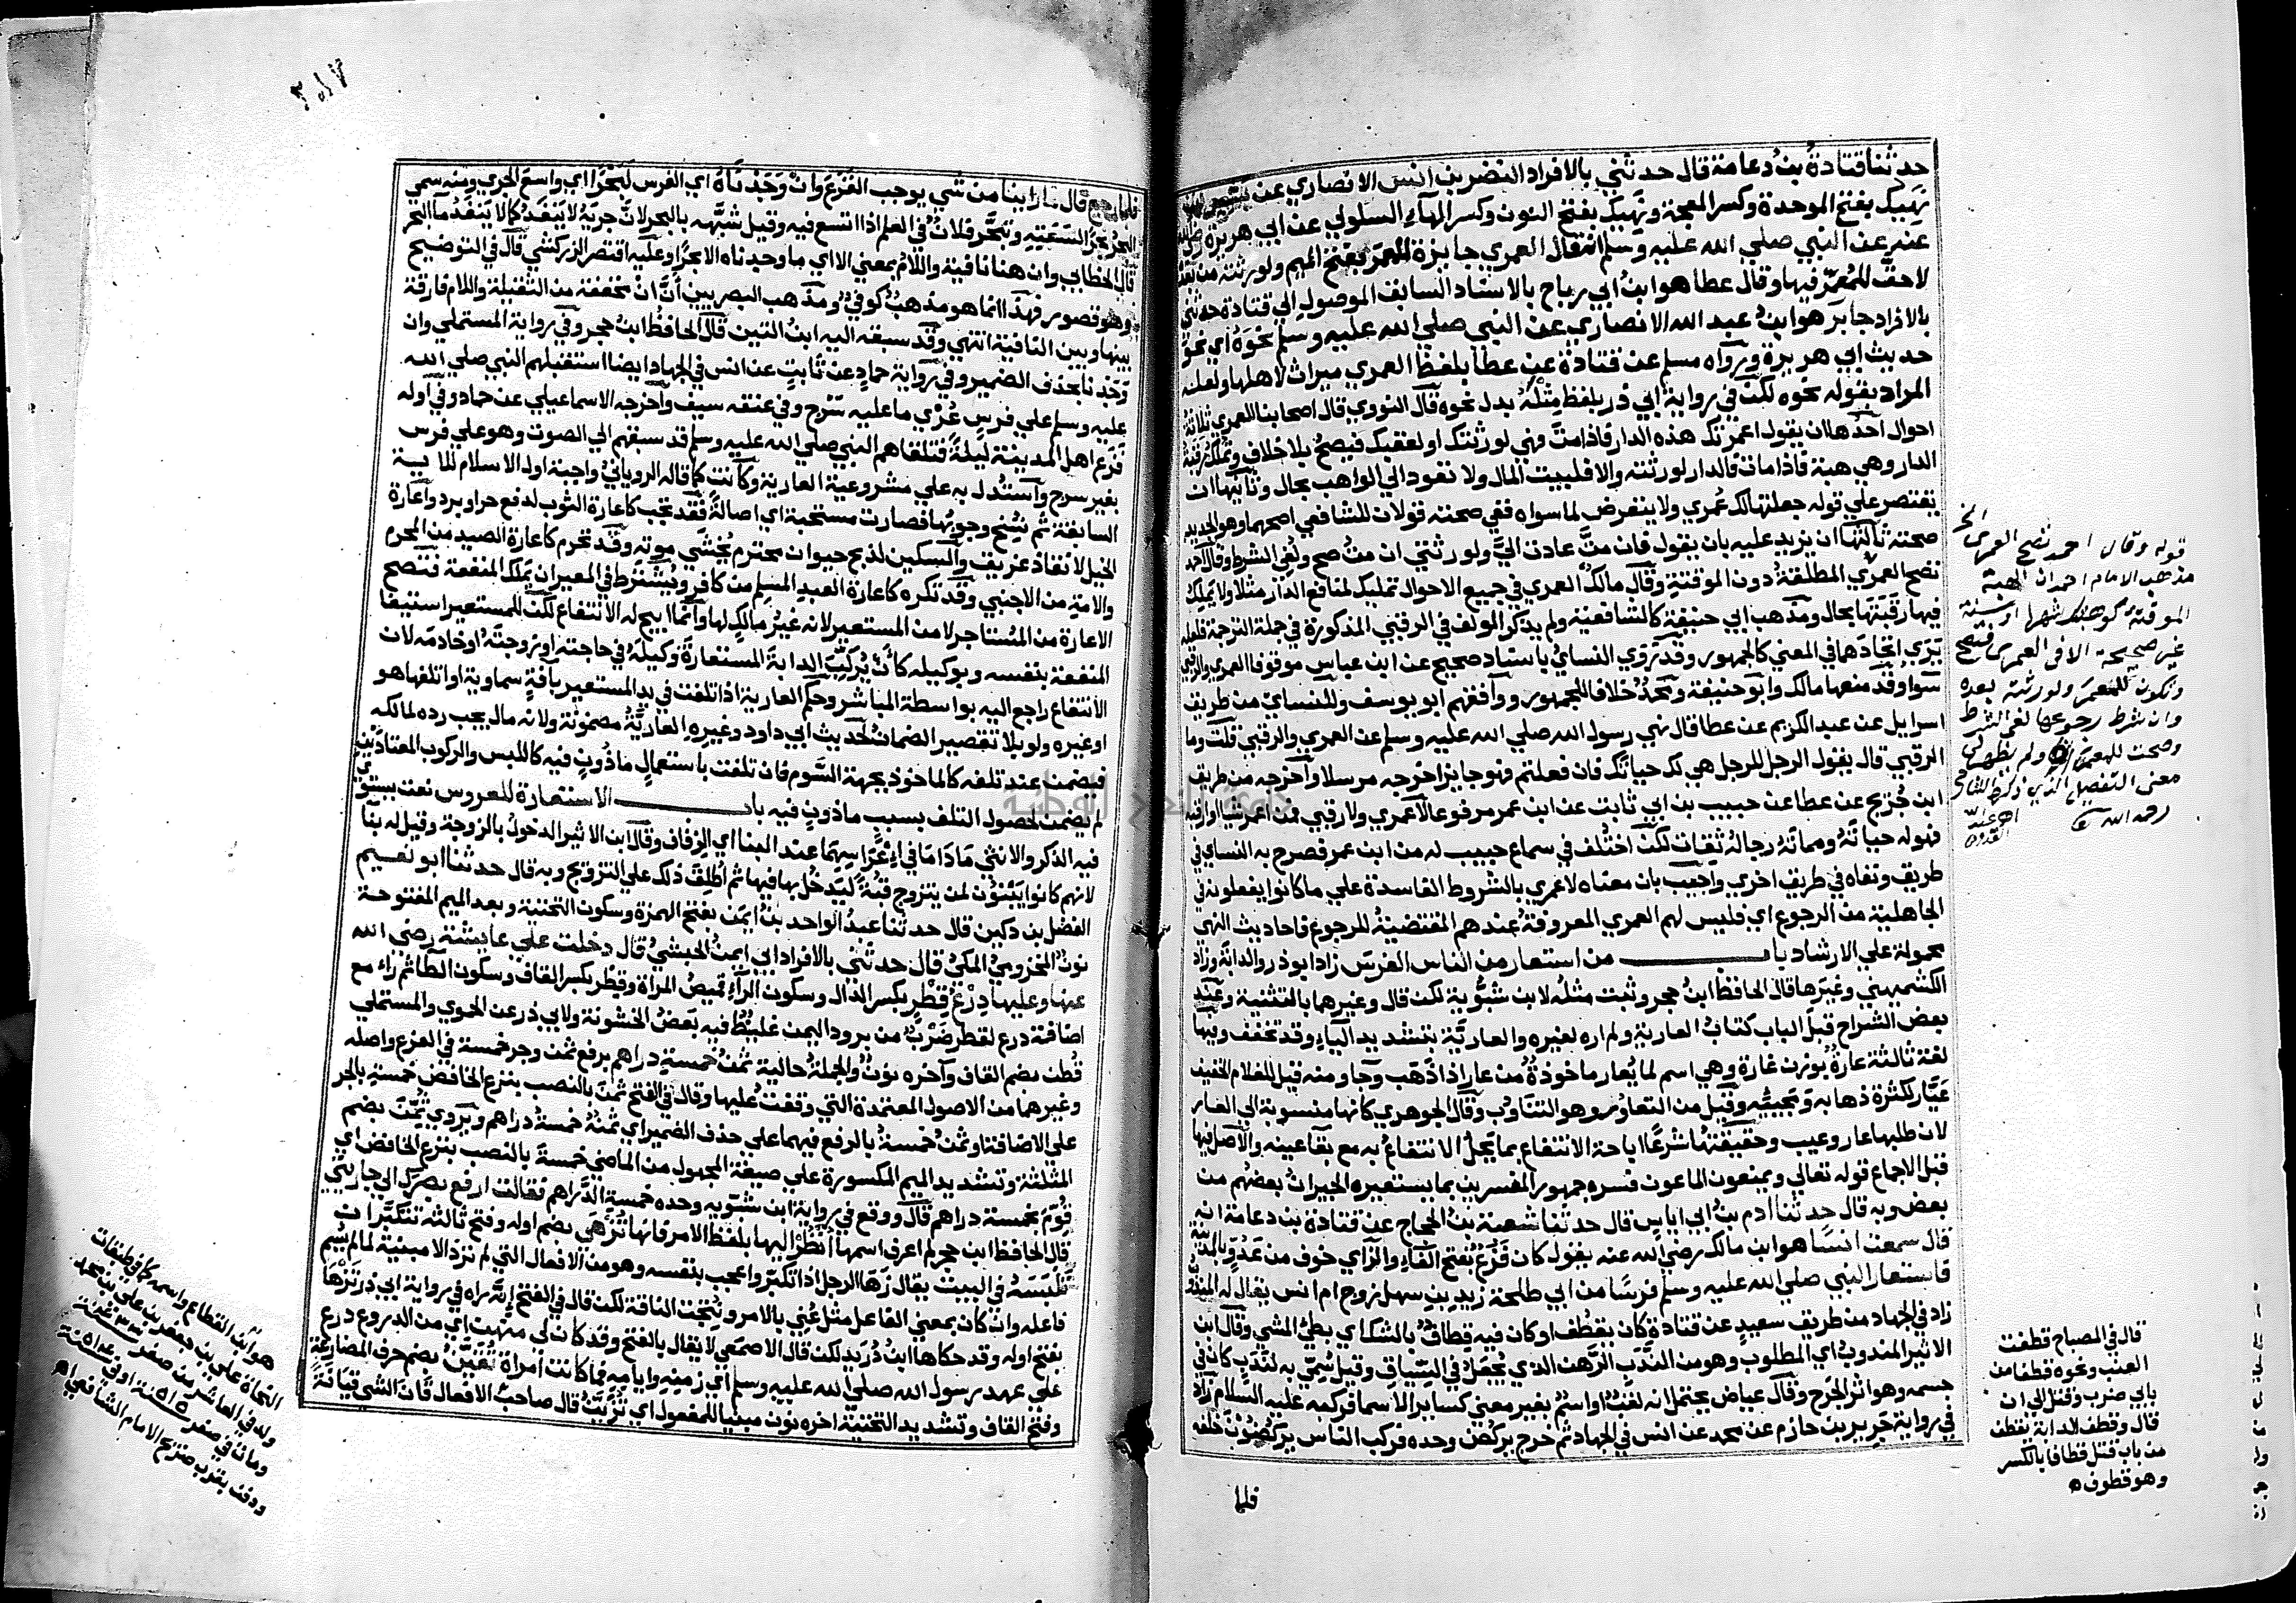 حدثنا قتادة بن دعامة قال حدثني بالافراد النضر بن انس الانصاري عن بشير بن
نهيك بفتح الموحدة وكسر المعجمة ونهيك بفتح النون وكسر الهاء السلولي عن ابي هريرة رضي الله
عنه عن النبي صلي الله عليه وسلم انه قال العمري جايزة للعمر بفتح الميم ولورثته من بعده
لاحق للمعمر فيها وقال عطا هو ابن ابي رباح بالاسناد السابق الموصول الي قتادة حدثني
بالافراد جابر هو ابن عبد الله الانصاري عن النبي صلي الله عليه وسلم نحوه اي نحو
حديث ابي هريرة ورواه مسلم عن قتادة عن عطا بلفظ العمري ميراث لاهلها ولعله
المراد بقوله نحوه لكن في رواية ابي ذر بلفظ مثله بدل نحوه قال النووي قال اصحابنا للعمري ثلاثة
احوال احدها ان يقول اعمرتك هذه الدار فاذا مت فهي لورثتك او لعقبك فيصح بلا خلاف ويملك رقبة
الدار وهي هبة فاذا مات فالدار لورثته والا فلبيت المال ولا تعود الي الواهب بحال وثانيها ان
يقتصر علي قوله جعلتها لك عمري ولا يتعرض لما سواه ففي صحته قولان للشافعي اصحهما وهو الجديد
صحته ثالثها ان يزيد عليه بان يقول فان مت عادت الي ولورثتي ان مت صح ولغي الشرط وقال احمد
تصح العمري المطلقة دون الموقتة وقال مالك العمري في جميع الاحوال تمليك لمنافع الدار مثلا ولا يملك
فيها رقبتها بحال ومذهب ابي حنيفة كالشافعية ولم يذكر المولف في الرقبي المذكورة في جملة الترجمة فلعله
يري اتحادهما في المعني كالجمهور وقد روي النساي باسناد صحيح عن ابن عباس موقوفا العمري والرقبي
سوا وقد منعها مالك وابو حنيفة ومحمد خلاف الجمهور ووافقهم ابو يوسف وللنساي من طريق
اسرايل عن عبد الكريم عن عطا قال نهي رسول الله صلي الله عليه وسلم عن العمري والرقبي قلت وما
الرقبي قال يقول الرجل للرجل هي لك حياتك فان فعلتم فهو جايز اخرجه مرسلا واخرجه من طريق
ابن جريج عن عطا عن حبيب بن ابي ثابت عن ابن عمر مرفوعا لا عمري ولا رقبي فمن اعمر شيا او ارقبه
فهو له حياته ومماته رجاله ثقات لكن اختلف في سماع حبيب له من ابن عمر فصرح به النساي في
طريق ونفاه في طريق اخري واجيب بان معناه لا عمري بالشروط الفاسدة علي ما كانوا يفعلونه في
الجاهلية من الرجوع اي فليس لهم العمري المعروفة عندهم المقتضية للرجوع فاحاديث النهي
محمولة علي الارشاد باب من استعار من الناس الفرس زاد ابو ذر والدابة وزاد
الكشميهني وغيرها قال الحافظ ابن حجر وثبت مثله لابن شبوية لكن قال وغيرهما بالتثنية وعند
بعض الشراح قبل الباب كتاب العارية ولم اره لغيره والعارية بتشديد الياء وقد تخفف وفيها
لغة ثالثة عارة بوزن غارة وهي اسم لما يعار ماخوذة من عار اذا ذهب وجا ومنه قيل للغلام الخفيف
عيار لكثرة ذهابه ومجيئه وقيل من التعاور وهو التناوب وقال الجوهري كانها منسوبة الي العار
لان طلبها عار وعيب وحقيقتها شرعا اباحة الانتفاع بما يحل الانتفاع به مع بقا عينه والاصل فيها
قبل الاجماع قوله تعالي ويمنعون الماعون فسره جمهور المفسرين بما يستعيره الجيران بعضهم من
بعض وبه قال حدثنا ادم بن ابي اياس قال حدثنا شعبة بن الحجاج عن قتادة بن دعامة انه
قال سمعت انسا هو ابن مالك رضي الله عنه يقول كان فزع بفتح الفاء والزاي خوف من عدو بالمدينة
فاستعار النبي صلي الله عليه وسلم فرسا من ابي طلحة زيد بن سهل زوج ام انس يقال له المندوب
زاد في الجهاد من طريق سعيد عن قتادة كان يقطف او كان فيه قطاف بالشك اي بطئ المشي وقال ابن
الاثير المندوب اي المطلوب وهو من الندب الرهن الذي يجعل في السباق وقيل سمي به لندب كان في
جسمه وهو اثر الجرح وقال عياض يحتمل انه لقب او اسم بغير معني كساير الاسما فركبه عليه السلام زاد
في رواية جرير بن حازم عن محمد عن انس في الجهاد ثم خرج يركض وحده فركب الناس يركضون خلفه
فلما
قوله وقال احمد تصح العمري الخ
مذهب الامام احمد ان الهبة
الموقتة كوهبتك شهرا او سنة
غير صحيحة الا في العمري فتصح
وتكون للمعمر ولورثته بعده
وان شرط رجوعها لغي الشرط
وصحت للمعمر ولم يظهر لي
معني التفصيل الذي ذكره الشافعي
رحمه الله
قال في المصباح قطفت
العنب ونحوه قطفا من
بابي ضرب وقتل الي ان
قال وقطف الدابة يقطف
من باب قتل قطافا بالكسر
وهو قطوف
فلما رجع قال ما راينا من شي يوجب الفزع وان وجدناه اي الفرس لبحرا اي واسع الجري ومنه سمي
البحر بحرا لسعته وتبحر فلان في العلم اذا اتسع فيه وقيل شبهه بالبحر لان جريه لا ينفد كما لا ينفد ما البحر
قال الخطابي وان هنا نافية واللام بمعني الا اي ما وجدناه الا بحرا وعليه اقتصر الزركشي قال في التوضيح
وهو قصور فهذا انما هو مذهب كوفي ومذهب البصريين ان ان مخففة من الثقيلة واللام فارقة
بينها وبين النافية انتهي وقد سبقه اليه ابن التين قال الحافظ ابن حجر وفي رواية المستملي وان
وجدنا بحذف الضمير وفي رواية حماد عن ثابت عن انس في الجهاد ايضا استقبلهم النبي صلي الله
عليه وسلم علي فرس عري ما عليه سرج وفي عنقه سيف واخرجه الاسماعيلي عن حماد وفي اوله
فزع اهل المدينة ليلة فتلقاهم النبي صلي الله عليه وسلم قد سبقهم الي الصوت وهو علي فرس
بغير سرج واستدل به علي مشروعية العارية وكانت كما قاله الروياني واجبة اول الاسلام للاية
السابقة ثم نسخ وجوبها فصارت مستحبة اي اصالة فقد تجب كاعارة الثوب لدفع حر او برد واعارة
الحبل لانقاذ غريق والسكين لذبح حيوان محترم يخشي موته وقد تحرم كاعارة الصيد من المحرم
والامة من الاجنبي وقد تكره كاعارة العبد المسلم من كافر ويشترط في المعير ان يملك المنفعة فتصح
الاعارة من المستاجر لا من المستعير لانه غير مالك لها وانما ابيح له الانتفاع لكن للمستعير استيفا
المنفعة بنفسه وبوكيله كان يركب الدابة المستعارة وكيله في حاجته او زوجته او خادمه لان
الانتفاع راجع اليه بواسطة المباشر وحكم العارية اذا تلفت في يد المستعير بافة سماوية او اتلفها هو
او غيره ولو بلا تقصير الضمان لحديث ابي داود وغيره العارية مضمونة ولانه مال يجب رده لمالكه
فيضمن عند تلفه كالماخوذ بجهة السوم فان تلفت باستعمال ماذون فيه كاللبس والركوب المعتادين
لم يضمن لحصول التلف بسبب ماذون فيه باب الاستعارة للعروس نعت يستوي
فيه الذكر والانثي ما داما في اعراسهما عند البنا اي الزفاف وقال ابن الاثير الدخول بالزوجة وقيل له بنا
لانهم كانوا يبنون لمن يتزوج قبة ليدخل بها فيها ثم اطلق ذلك علي التزويج وبه قال حدثنا ابو نعيم
الفضل بن دكين قال حدثنا عبد الواحد بن ايمن بفتح الهمزة وسكون التحتية وبعد الميم المفتوحة
نون المخزومي المكي قال حدثني بالافراد ابي ايمن الحبشي قال دخلت علي عايشة رضي الله
عنها وعليها درع قطر بكسر الدال وسكون الراء قميص المراة وقطر بكسر القاف وسكون الطا ثم راء مع
اضافة درع لقطر ضرب من برود اليمن غليظ فيه بعض الخشونة ولابي ذر عن الحموي والمستملي
قطن بضم القاف واخره نون والجملة حالية ثمن خمسة دراهم برفع ثمن وجر خمسة في الفرع واصله
وغيرهما من الاصول المعتمدة التي وقفت عليها وقال في الفتح ثمن بالنصب بنزع الخافض خمسة بالجر
علي الاضافة وثمن خمسة بالرفع فيهما علي حذف الضمير اي ثمنه خمسة دراهم ويروي ثمن بضم
المثلثة وتشديد الميم المكسورة علي صيغة المجهول من الماضي خمسة بالنصب بنزع الخافض اي
قوم بخمسة دراهم قال ووقع في رواية ابن شبويه وحده خمسة الدراهم فقالت ارفع بصرك الي جاريتي
قال الحافظ ابن حجر لم اعرف اسمها انظر اليها بلفظ الامر فانها تزهي بضم اوله وفتح ثالثه تتكبر ان
تلبسه في البيت يقال زها الرجل اذا تكبر واعجب بنفسه وهو من الافعال التي لم ترد الا مبنية لما لم يسم
فاعله وان كان بمعني الفاعل مثل عني بالامر ونتجت الناقة لكن قال في الفتح انه راه في رواية ابي ذر تزها
بفتح اوله وقد حكاها ابن دريد لكن قال الاصمعي لا يقال بالفتح وقد كان لي منهن اي من الدروع درع
علي عهد رسول الله صلي الله عليه وسلم اي زمنه وايامه فما كانت امراة تقين بضم حرف المضارعة
وفتح القاف وتشديد التحتية اخره نون مبنيا للمفعول اي تزين قال صاحب الافعال قان الشي قيانة
هو ابن القطاع واسمه كما في طبقات
النحاة علي بن جعفر بن علي بن محمد
ولد في العاشر من صفر سنة
ومات في صفر سنة ٥١٥ او سنة ٥١٤
ودفن بقرب ضريح الامام الشافعي